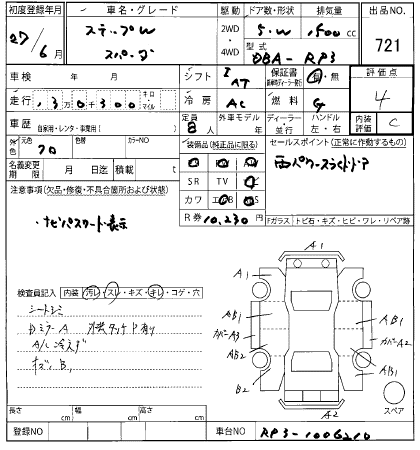 初度登録年月 車名・グレード 駆動 ドア数・形状 排気量 出品NO.
27/6月 ステップW スパーダ 2WD 4WD 5.W 1500cc 721
型式 DBA- RP3
車検 年 月 シフト I AT 保証書 有・無 評価点 4
走行 13万0千300 キロ マイル 冷房 AC 燃料 G 内装 C
車歴 自家用・レンタ・事業用( ) 定員 8人 外車モデル 年 ディーラー・並行 ハンドル 左・右
外色 元色 クロ 色替 カラーNO 装備品(純正品に限る) セールスポイント(正常に作動するもの)
名義変更期限 月 日迄 積載 t 両パワースライドドア
注意事項(欠品・修復・不具合箇所および状態) SR TV
カワ
・ナビパスワード表示 R券 10,230円 Fガラス トビ石・キズ・ヒビ・ワレ・リペア跡
検査員記入 内装 汚レ・スレ・キズ・キレ・コゲ・穴
シートシミ
DミラーA 外装タッチP有り
A/C冷えず
キズ.B1
A1
A1
AB1 AB1
カバーA3 カバーA2
AB2 AB1
B2
A2
スペア
長さ cm 幅 cm 高さ cm
登録NO 車台NO RP3-1006210